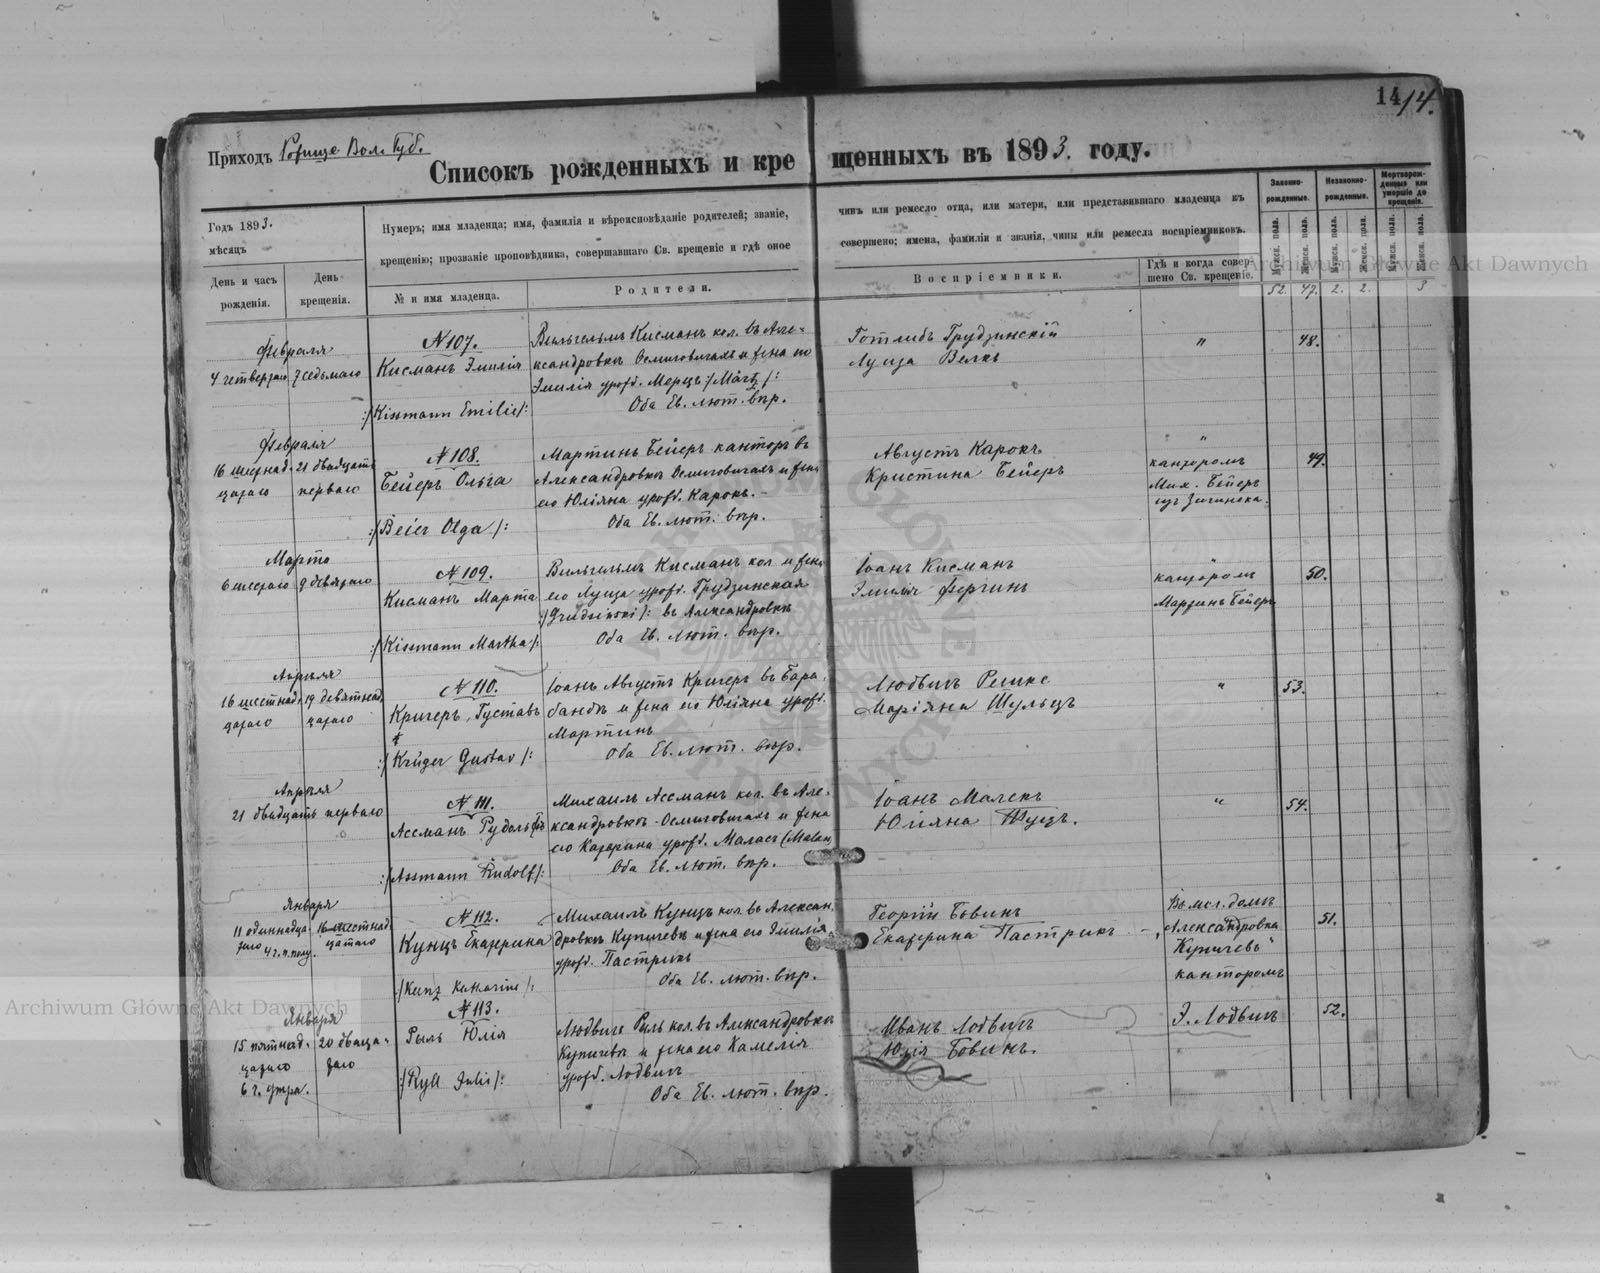 14 14.
Приходъ Рожище Вол. Губ.
Списокъ рожденныхъ и крещенныхъ въ 1893. году.
Годъ 1893.
мѣсяцъ
День и часъ рожденія.
День крещенія.
Нумеръ; имя младенца; имя, фамилія и вѣроисповѣданіе родителей; званіе,
чинъ или ремесло отца, или матери, или представившаго младенца къ
крещенію; прозваніе проповѣдника, совершавшаго Св. крещеніе и гдѣ оное
совершено; имена, фамиліи и званія, чины или ремесла воспріемниковъ.
№ и имя младенца.
Родители.
Воспріемники.
Гдѣ и когда совершено Св. крещеніе.
Законнорожденные.
Незаконнорожденные.
Мертворожденные или умершіе до крещенія.
Мужск. пола.
Женск. пола.
Мужск. пола.
Женск. пола.
Мужск. пола.
Женск. пола.
52. 47. 2. 2. 3
Февраля
4 четвертаго
7 седьмаго
N 107.
Кисманъ Эмилія
/Kissmann Emilie/:
Вильгельмъ Кисманъ кол. въ Але-
ксандровкѣ Осмиговичахъ и жена его
Эмилія урожд. Мерцъ :/März/:
Оба Ев. лют. вѣр.
Готлибъ Грудзинскій
Луиза Велкъ
"
48.
Февраля
16 шестнад-
цатаго
21 двадцать
перваго
N 108.
Бейеръ Ольга
:/Beier Olga/:
Мартинъ Бейеръ канторъ въ
Александровкѣ Осмиговичахъ и жена
его Юліяна урожд. Карокъ.-
Оба Ев. лют. вѣр.
Августъ Карокъ
Кристина Бейеръ
"
канторомъ
Мих. Бейеръ
49.
Марта
6 шестаго
9 девятаго
N 109.
Кисманъ Марта
:/Kissmann Martha/:
Вильгельмъ Кисманъ кол. и жена
его Луиза урожд. Грудзинская
:/Grudsinski/: въ Александровкѣ
Оба Ев. лют. вѣр.
Іоанъ Кисманъ
Эмилія
"
канторомъ
Мартинъ Бейеръ
50.
Апрѣля
16 шестнад-
цатаго
19 девятнад-
цатаго
N 110.
Кригеръ, Густавъ
:/Krüger Gustav/:
Іоанъ Августъ Кригеръ въ Бара-
бандѣ и жена его Юліяна урожд.
Мартинъ
Оба Ев. лют. вѣр.
Людвигъ
Маріяна Шульцъ
"
53.
Апрѣля
21 двадцать перваго
N 111.
Ассманъ Рудольфъ
:/Assmann Rudolf/:
Михаилъ Ассманъ кол. въ Але-
ксандровкѣ-Осмиговичахъ и жена
его Катарина урожд.
Оба Ев. лют. вѣр.
Іоанъ
Юліяна
"
54.
Января
11 одиннадца-
таго
4 ч. п. полу.
16 шестнад-
цатаго
N 112.
Кунцъ Екатерина
:/Kunz Katharine/:
Михаилъ Кунцъ кол. въ Алексан-
дровкѣ Купичевѣ и жена его Эмилія
урожд. Пастрикъ
Оба Ев. лют. вѣр.
Георгій Бовинъ
Екатерина Пастрикъ
Въ мол. домѣ
Александровка
"Купичевъ"
канторомъ
51.
Января
15 пятнад-
цатаго
6 ч. утра.
20 двадца-
таго
N 113.
Рыль Юлія
:/Ryll Julie/:
Людвигъ Рыль кол. въ Александровкѣ
Купичевѣ и жена его Камелія
урожд. Лодвигъ
Оба Ев. лют. вѣр.
Иванъ Лодвигъ
Юлія Бовинъ.
Э. Лодвигъ
52.
Archiwum Główne Akt Dawnych
Archiwum Główne Akt Dawnych